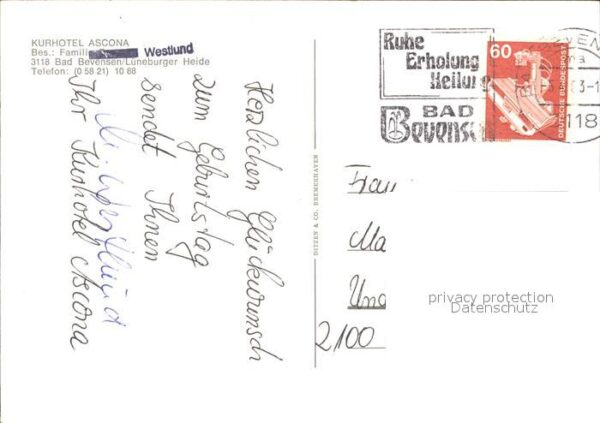 KURHOTEL ASCONA
Bes.: Famili Westlund
3118 Bad Bevensen/Lüneburger Heide
Telefon: (0 58 21) 10 88
Herzlichen Glückwunsch
zum Geburtstag
sendet Ihnen
Ihr Kurhotel Ascona
DITZEN & CO. BREMERHAVEN
Ruhe
Erholung
Heilun
BAD
Bevense
60
DEUTSCHE BUNDESPOST
118
Frau
Ma
Und
2100
privacy protection
Datenschutz